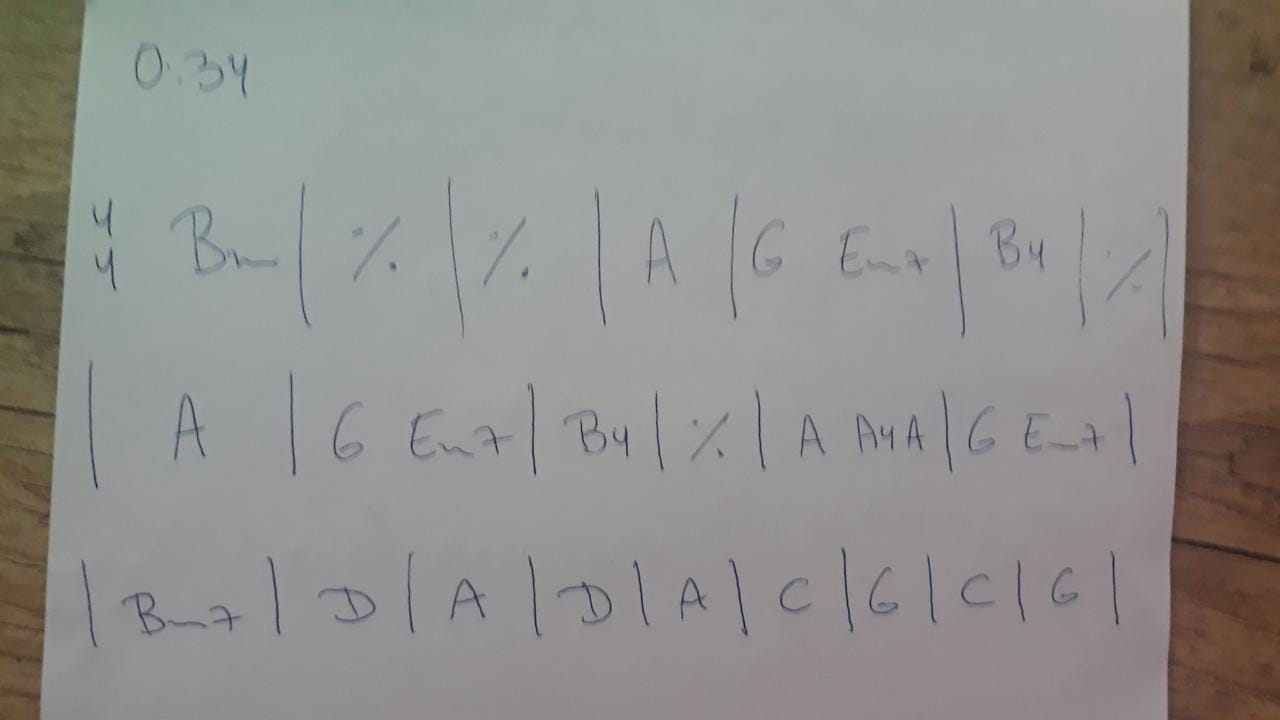 0:34
4/4 Bm | % | % | A | G Em7 | B4 | % |
| A | G Em7 | B4 | % | A A4 A | G Em7 |
| Bm7 | D | A | D | A | C | G | C | G |